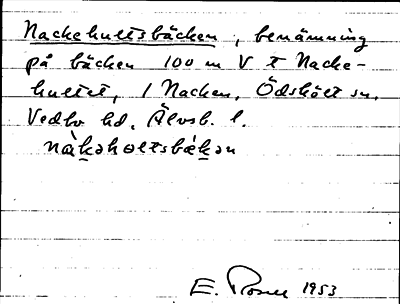 Nackehultsbäcken, benämning
på bäcken 100 m V t Nacke-
hultet, / Nacken, Ödskölt sn,
Vedbo hd, Älvsb. l.
nàkəholtsbákən
E. Rosell 1953